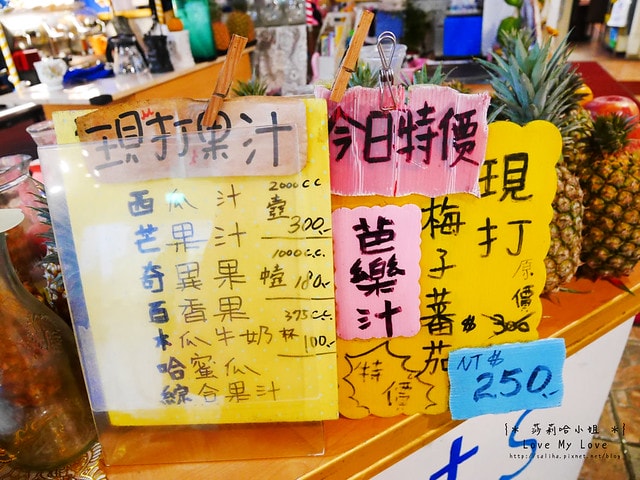 現打果汁
西瓜汁
芒果汁
奇異果
百香果
木瓜牛奶
哈蜜瓜
綜合果汁
2000cc
壺 300.-
1000c.c.
180.-
375c.c.
杯 100.-
今日特價
芭樂汁
特價
現打
梅子蕃茄
原價
$300
NT$
250.-
{* 莎莉哈小姐 *}
Love My Love
http://saliha.pixnet.net/blog